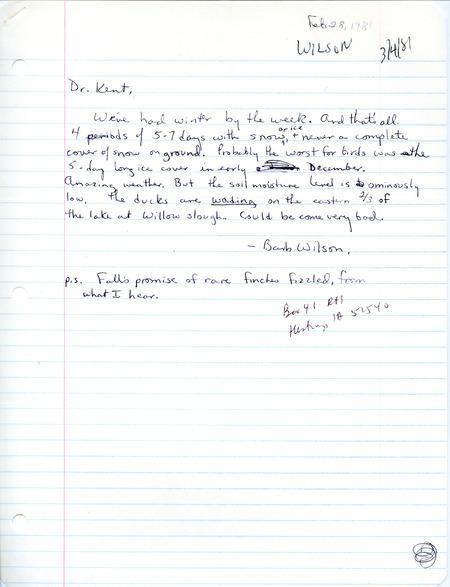 Feb 28, 1981
WILSON 3/4/81
Dr. Kent,
We've had winter by the week. And that's all.
4 periods of 5-7 days with snow, or ice, + never a complete
cover of snow on ground. Probably the worst for birds was the
5-day long ice cover in early December.
Amazing weather. But the soil moisture level is ominously
low. The ducks are wading on the eastern 2/3 of
the lake at Willow Slough. Could become very bad.
- Barb Wilson,
p.s. Fall's promise of rare finches fizzled, from
what I hear.
Box 41 R#1
Hastings IA 51540